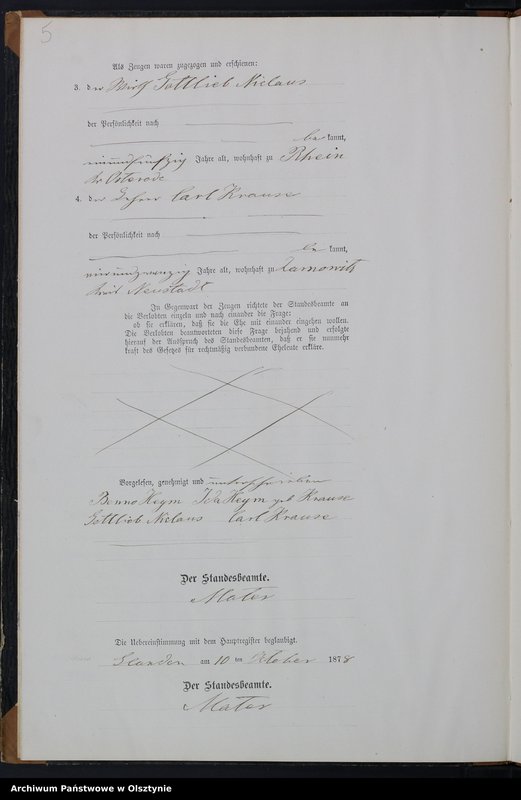 5
Als Zeugen waren zugezogen und erschienen:
3. der Wirth Gottlieb Niclaus
der Persönlichkeit nach
be kannt,
Jahre alt, wohnhaft zu Rhein
Kr. Osterode
4. der Lehrer Carl Krause
der Persönlichkeit nach
be kannt,
vierundzwanzig Jahre alt, wohnhaft zu
Kreis Neustadt
In Gegenwart der Zeugen richtete der Standesbeamte an
die Verlobten einzeln und nach einander die Frage:
ob sie erklären, daß sie die Ehe mit einander eingehen wollen.
Die Verlobten beantworteten diese Frage bejahend und erfolgte
hierauf der Ausspruch des Standesbeamten, daß er sie nunmehr
kraft des Gesetzes für rechtmäßig verbundene Eheleute erkläre.
Vorgelesen, genehmigt und unterschrieben
Benno Heym Ida Heym geb Krause
Gottlieb Niclaus Carl Krause
Der Standesbeamte.
Mater
Die Uebereinstimmung mit dem Hauptregister beglaubigt.
am 10 ten Oktober 1878
Der Standesbeamte.
Mater
Archiwum Państwowe w Olsztynie